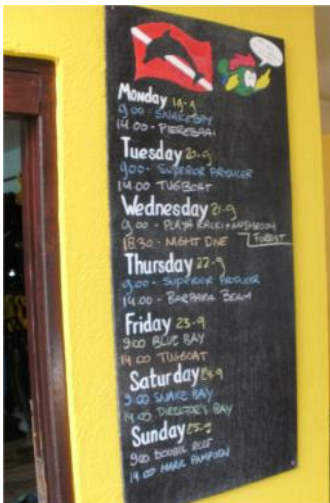 Monday 19-9
9.00 - SNAKEBAY
14.00 -
Tuesday 20-9
9.00 - SUPERIOR PRODUCER
14.00 TUGBOAT
Wednesday 21-9
9.00 - PLAYA KALKI + MUSHROOM
FOREST
18.30 - NIGHT DIVE
Thursday 22-9
9.00 - SUPERIOR PRODUCER
14.00 - BARBARA BEACH
Friday 23-9
9.00 BLUE BAY
14.00 TUGBOAT
Saturday 24-9
9.00 SNAKE BAY
14.00 DIRECTOR'S BAY
Sunday 25-9
9.00 DOUBLE REEF
14.00 MARIE PAMPOEN